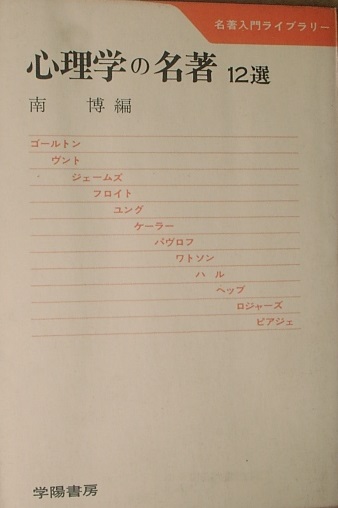 名著入門ライブラリー
心理学の名著 12選
南 博編
ゴールトン
ヴント
ジェームズ
フロイト
ユング
ケーラー
パヴロフ
ワトソン
ハル
ヘッブ
ロジャーズ
ピアジェ
学陽書房